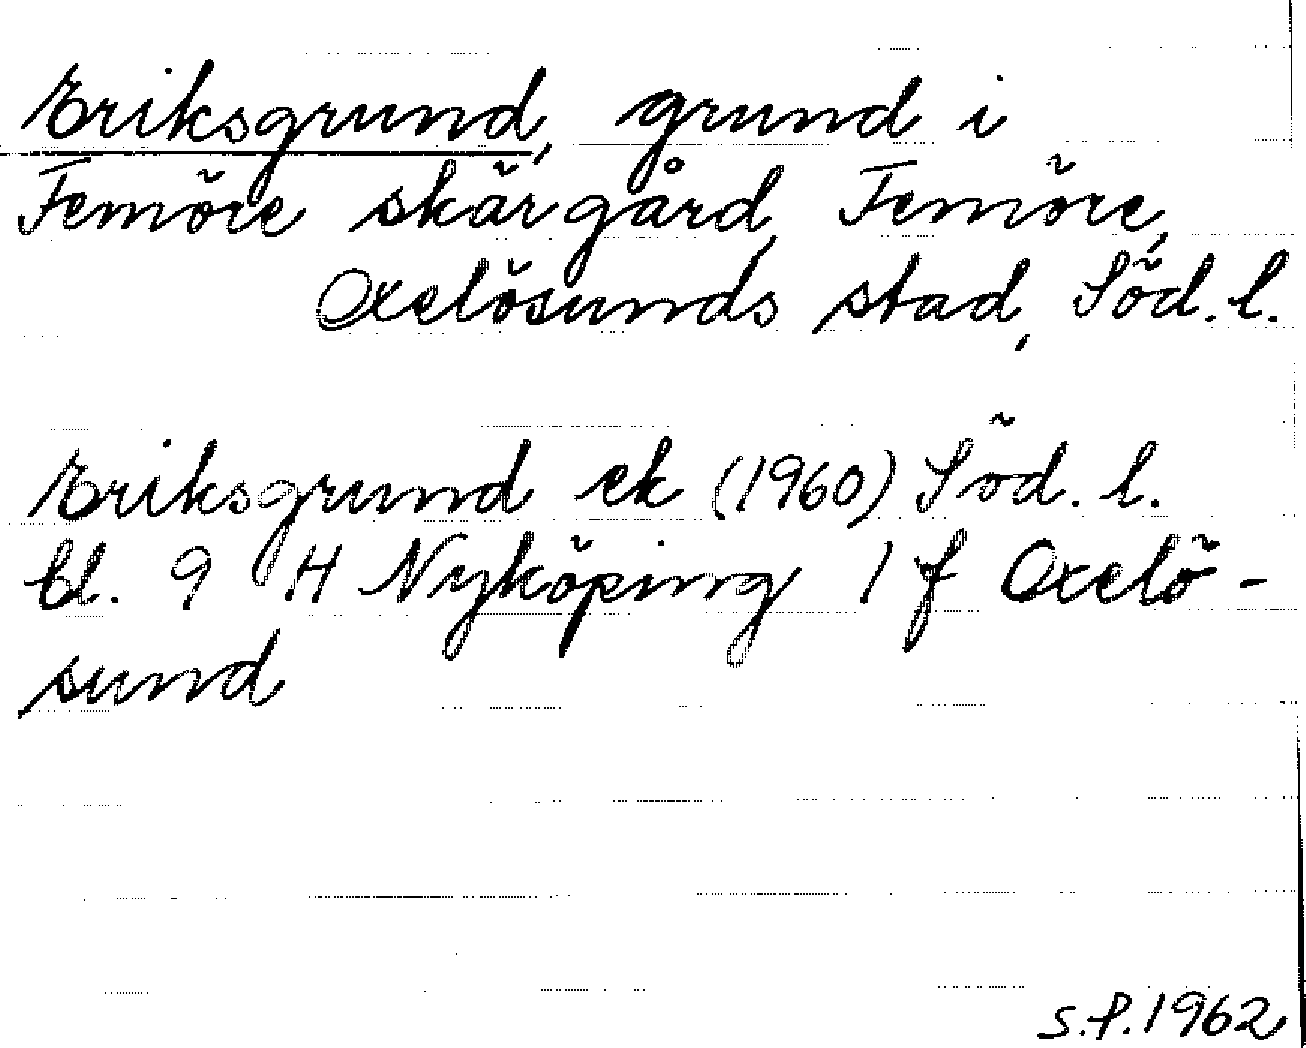 Eriksgrund, grund i
Femöre skärgård, Femöre,
Oxelösunds stad, Söd. l.
Eriksgrund ek (1960) Söd. l.
bl. 9 H Nyköping 1 f Oxelö-
sund
S.P. 1962